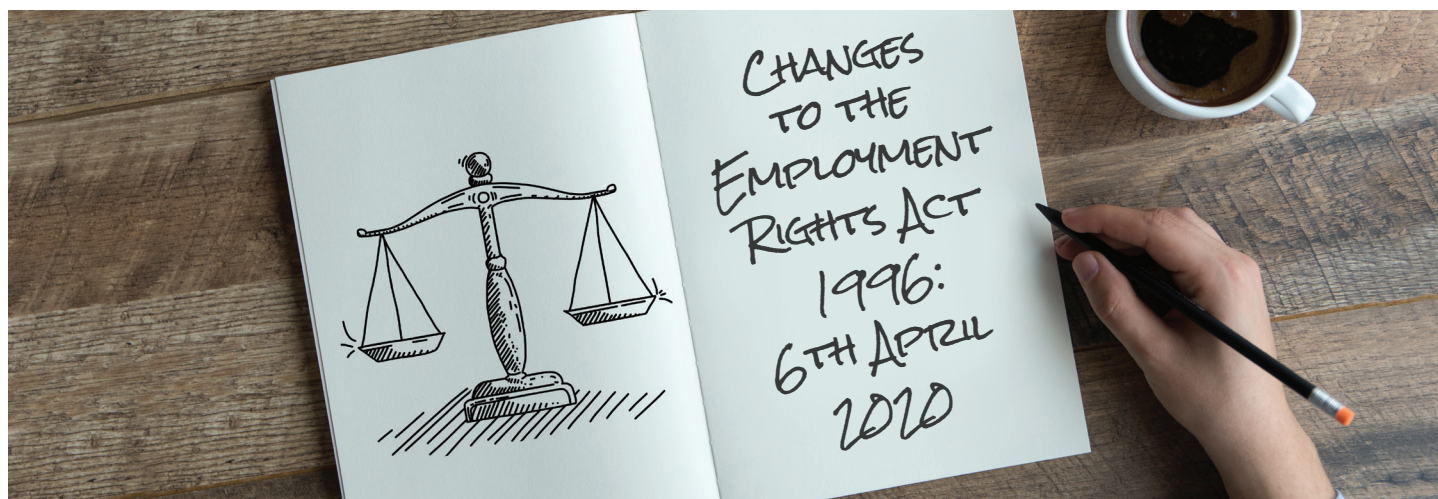 Changes
to the
Employment
Rights Act
1996:
6th April
2020